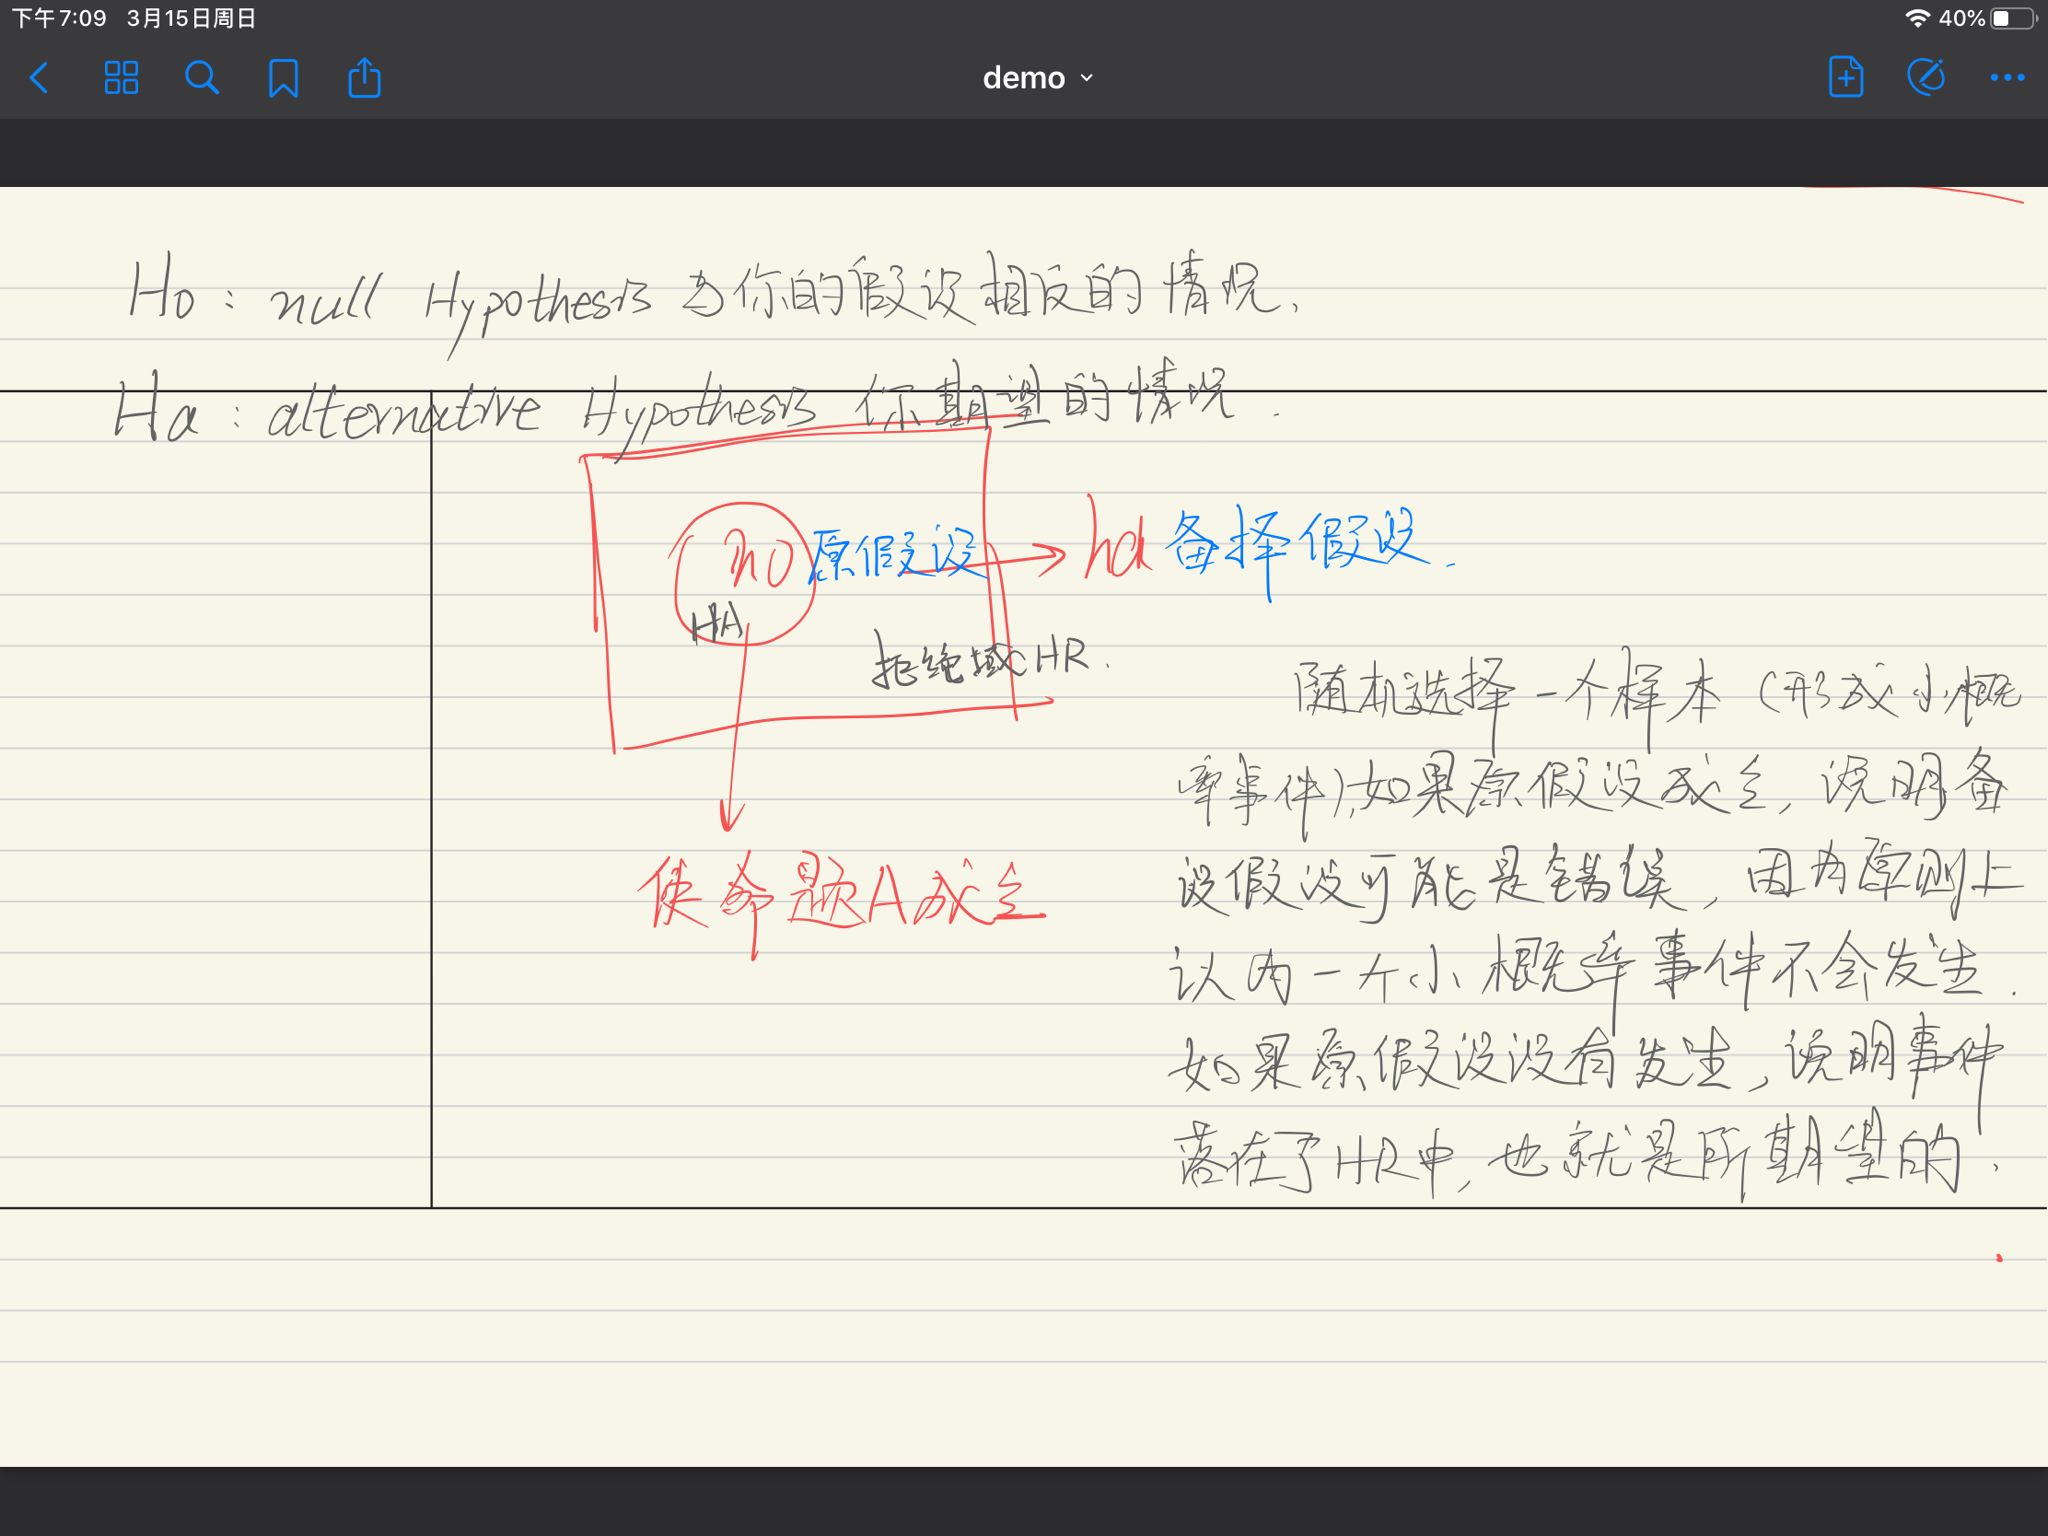 下午7:09 3月15日周日
40%
demo
H0: null Hypothesis 为你的假设相反的情况.
Ha: alternative Hypothesis 你期望的情况.
h0 原假设
ha 备择假设.
HA
拒绝域HR.
使命题A成立
随机选择一个样本(形成小概
率事件),如果原假设成立,说明备
设假设可能是错误,因为原则上
认为一个小概率事件不会发生.
如果原假设没有发生,说明事件
落在了HR中,也就是所期望的.